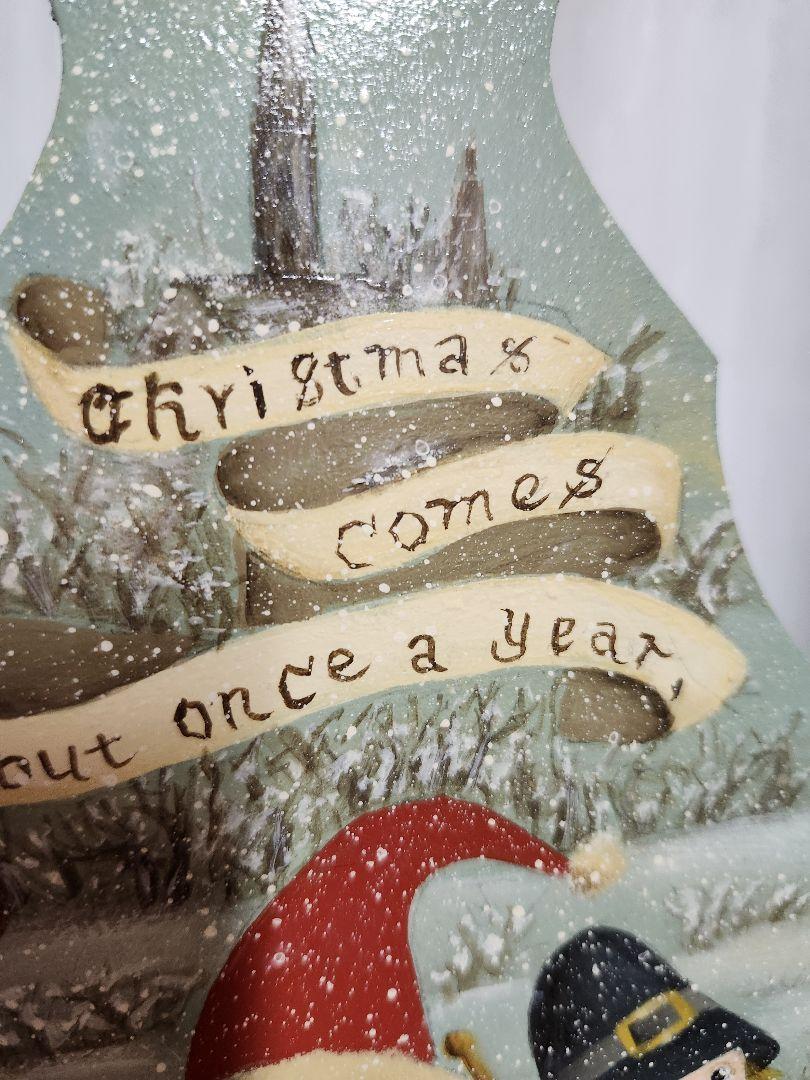 Christmas
comes
out once a year,